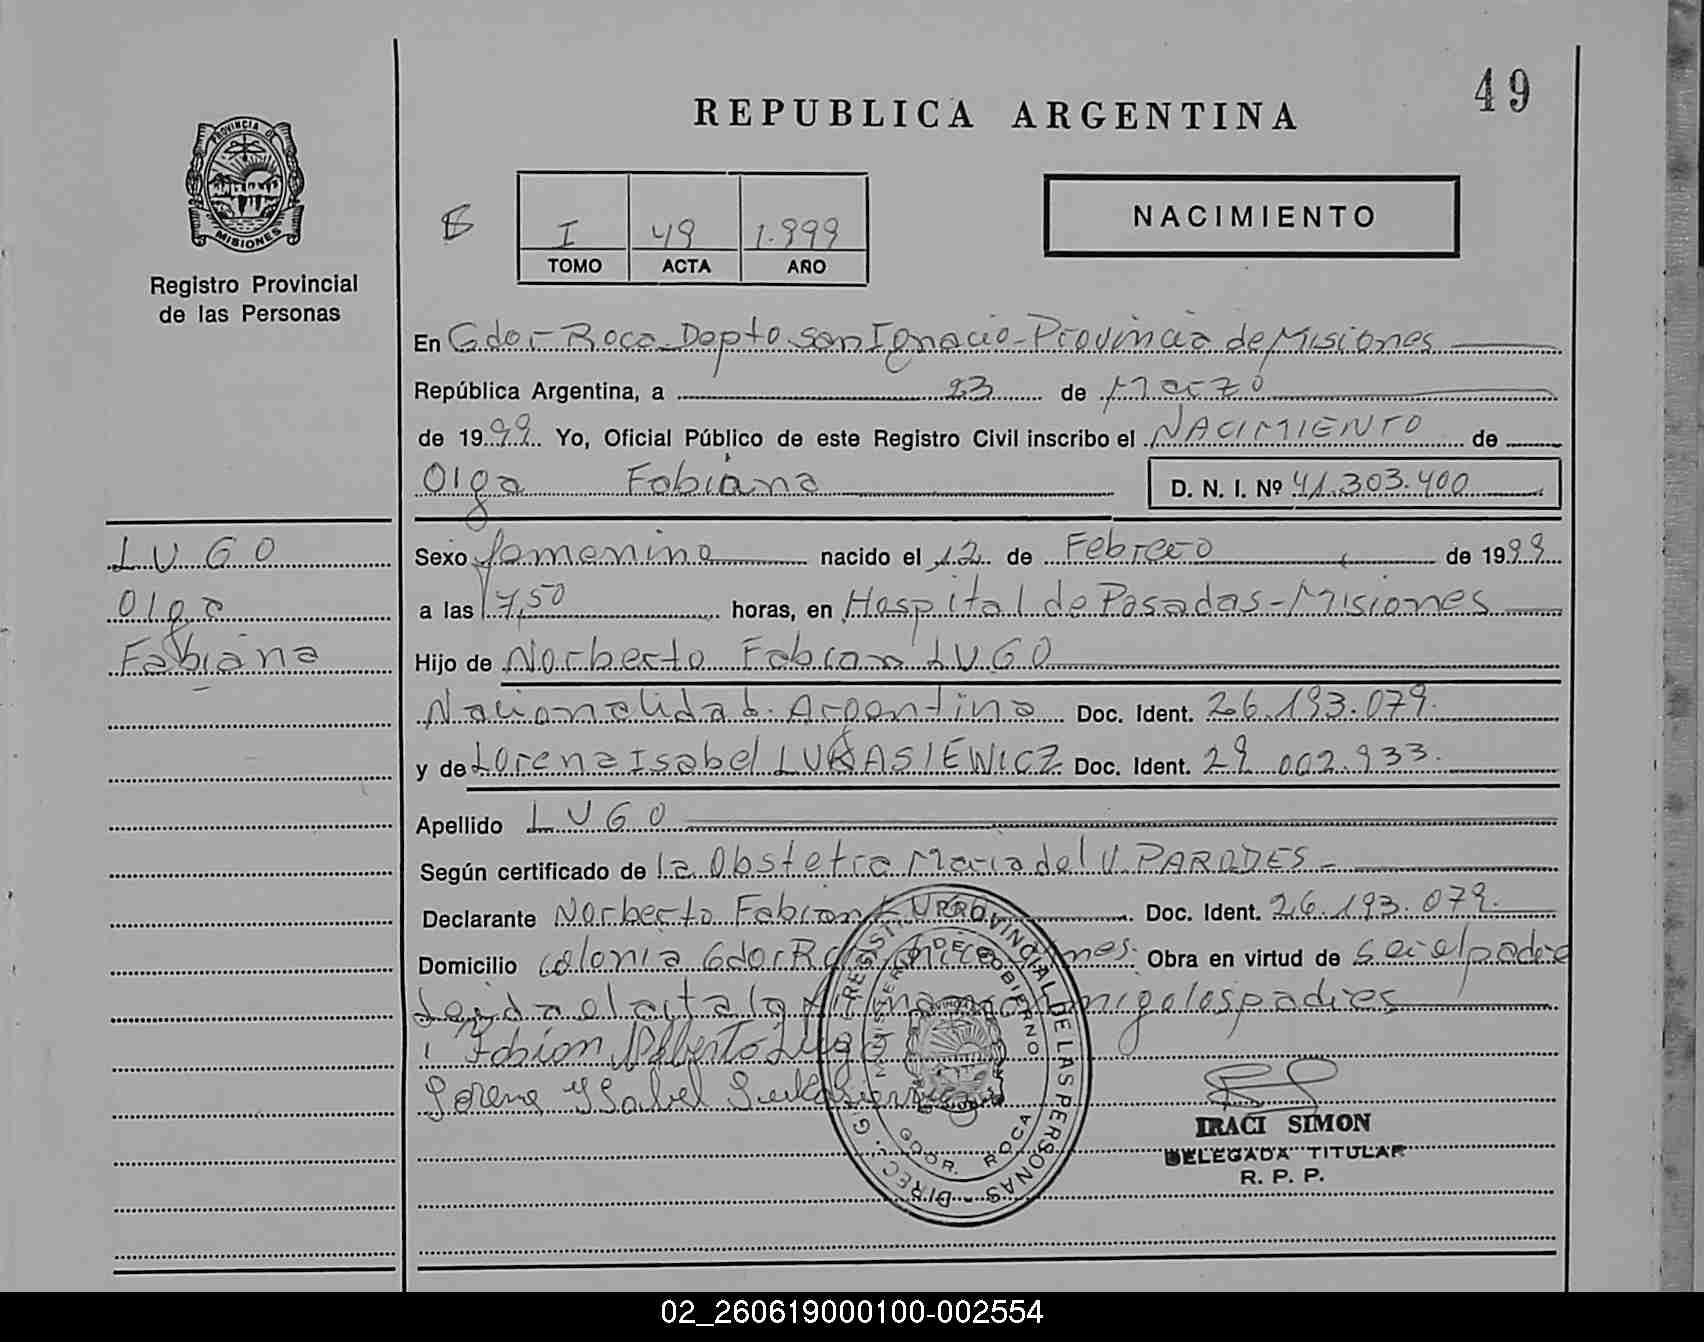 49
REPUBLICA ARGENTINA
PROVINCIA DE
MISIONES
Registro Provincial
de las Personas
NACIMIENTO
I 49 1.999
TOMO ACTA AÑO
En Gdor-Roca-Depto San Ignacio-Provincia de Misiones
República Argentina, a 23 de Marzo
de 1999 Yo, Oficial Público de este Registro Civil inscribo el NACIMIENTO de
Olga Fabiana D. N. I. Nº 41.303.400
LUGO
Olga
Fabiana
Sexo femenino nacido el 12 de Febrero de 1999
a las 17,50 horas, en Hospital de Posadas-Misiones
Hijo de Norberto Fabian LUGO
Nacionalidad Argentina Doc. Ident. 26.193.079.
y de Lorena Isabel LUKASIEWICZ Doc. Ident. 29 002.933.
Apellido LUGO
Según certificado de la Obstetra Maria del V. PAREDES-
Declarante Norberto Fabian Doc. Ident. 26.193.079.
Domicilio colonia Gdor Obra en virtud de ser el padre
Leida el acta conmigo los padres
Fabian Lugo
Lorena Ysabel
DIREC. G. REGIST. PROVINCIAL DE LAS PERSONAS
MINISTERIO DE GOBIERNO
GDOR. ROCA
IRACI SIMON
DELEGADA TITULAR
R. P. P.
02_260619000100-002554